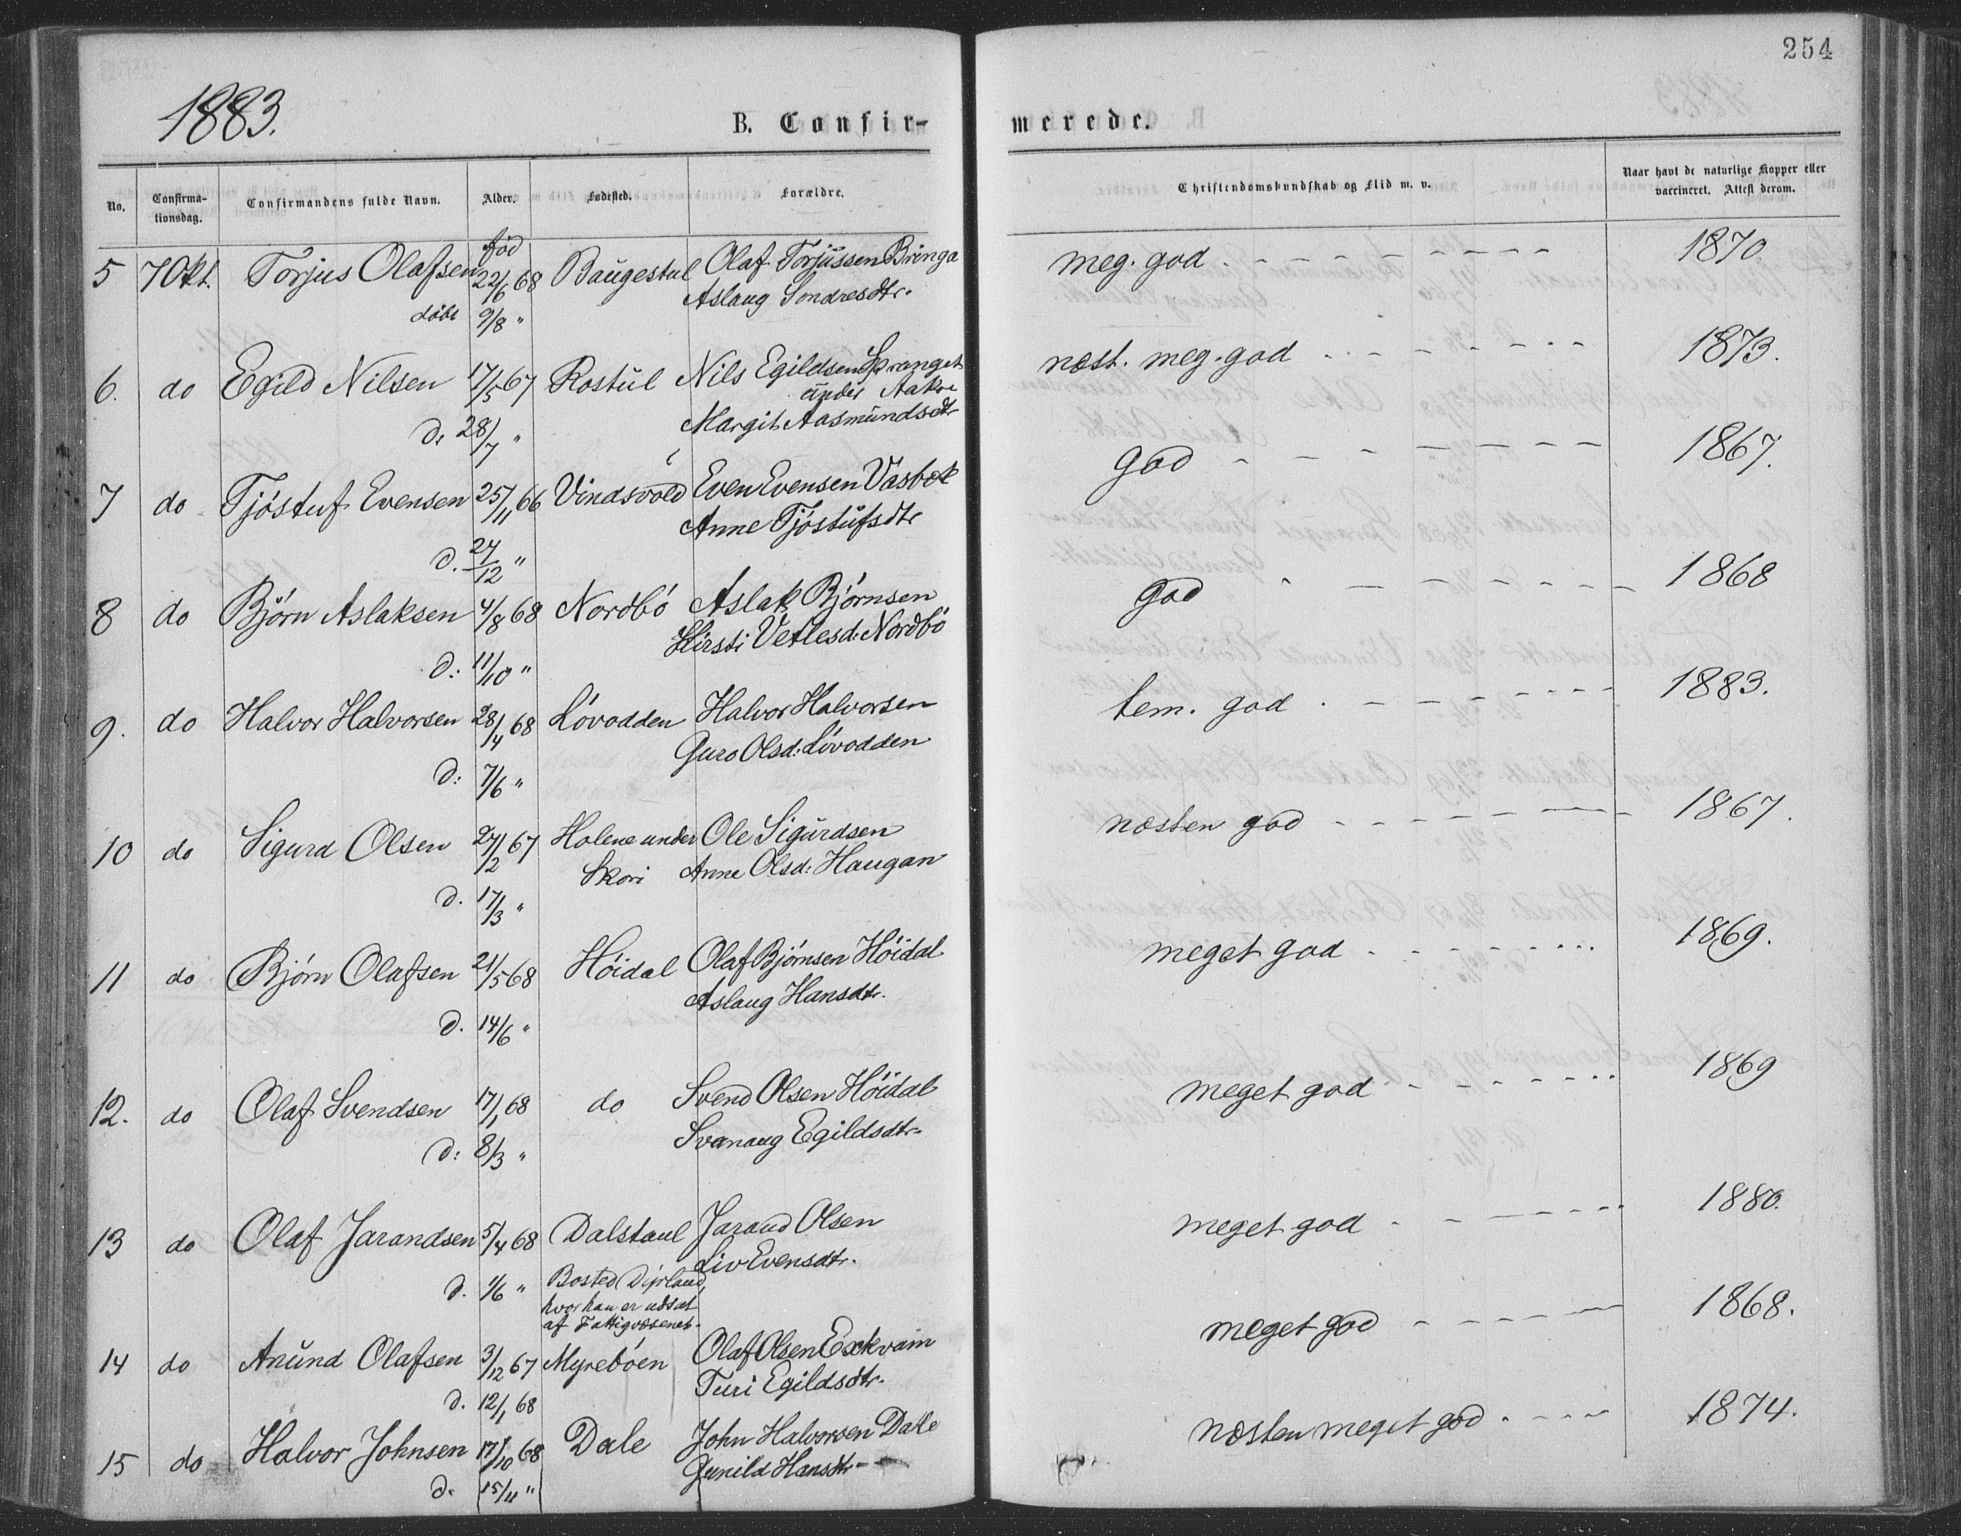 254
1883.
B. Confir-
merede.
No.
Confirma-
tionsdag.
Confirmandens fulde Navn.
Alder.
Fødested.
Forældre.
Christendomskundskab og Flid m. v.
Naar havt de naturlige Kopper eller
vaccineret. Attest derom.
5 7 Okt. Torjus Olafsen fød 22/6 68 Baugestul Olaf Torjussen Bringa meg. god 1870
døbt 9/8 " Aslaug Sondresdtr.
6. do Egild Nilsen 17/5 67 Rostul Nils Egildsen Spranget næst. meg. god 1873.
under Aakre
d. 28/7 " Margit Aasmundsdtr
7 do Tjöstuf Evensen 25/11 66 Vindsvold Even Evensen Vasbek god 1867.
Anne Tjöstufsdtr
d. 27/12 "
8 do Björn Aslaksen 4/8 68 Nordbö Aslak Björnsen god 1868
Kirsti Vetlesd: Nordbö
d: 11/10 "
9. do Halvor Halvorsen 28/4 68 Lövodden Halvor Halvorsen tem. god 1883.
Guro Olsd: Lövodden
d: 7/6 "
10 do Sigurd Olsen 27/2 67 Holene under Ole Sigurdsen næsten god 1867.
Skori Anne Olsd: Haugan
d. 17/3 "
11 do Björn Olafsen 21/5 68 Höidal Olaf Björnsen Höidal meget god 1869.
Aslaug Hansdtr.
d. 14/6 "
12. do Olaf Svendsen 17/1 68 do Svend Olsen Höidal meget god 1869
d: 8/3 " Svanaug Egildsdtr.
13 do Olaf Jarandsen 5/4 68 Dalstaul Jarand Olsen meget god 1880.
Liv Evensdtr.
d. 1/6 " Bosted Dyrland,
hvor han er udsat
af Fattigvæsenet.
14 do Anund Olafsen 3/12 67 Myreböen Olaf Olsen Eekvam meget god 1868.
d. 12/1 68 Turi Egildsdtr.
15 do Halvor Johnsen 17/10 68 Dale John Halvorsen Dale næsten meget god 1874.
d. 15/11 " Gunild Hansdtr